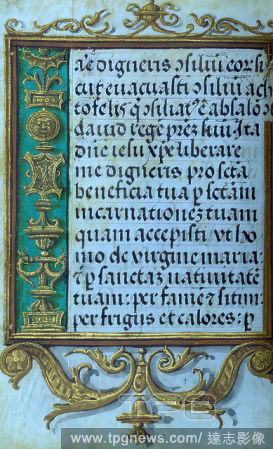 re digneris ꝯsiliū eorsi
cut euacuasti ↄsiliū ach
tofelis q̄ ↄsiliat⁹ ē absalō ↄ
dauid regē
dn̄e iesu xp̄e liberare
me digneris pro sctā
beneficia tua ꝑ sctam
incarnationeꝫ tuam
quam accepisti vt ho
mo de virgine maria⁊
ꝑ sanctaꝫ natiuitatē
tuam: per famē ⁊ sitim:
per frigus et calores: ꝑ
www.tpgnews.com/達志影像